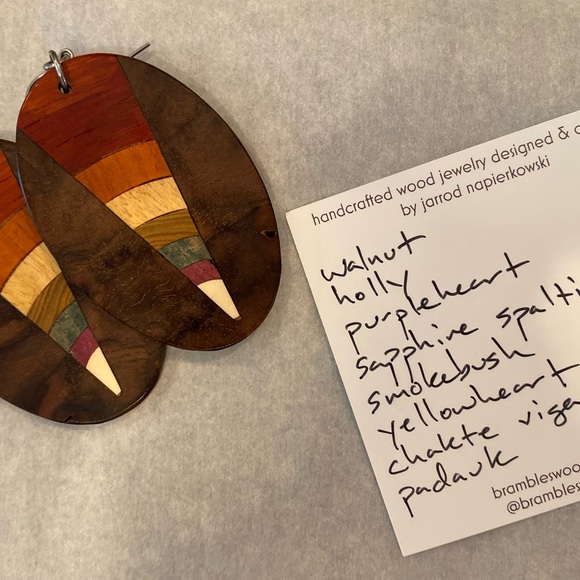 handcrafted wood jewelry designed &
by jarrod napierkowski
walnut
holly
purpleheart
sapphire spalti
smokebush
yellowheart
chakte viga
padauk
brambleswoo
@brambles